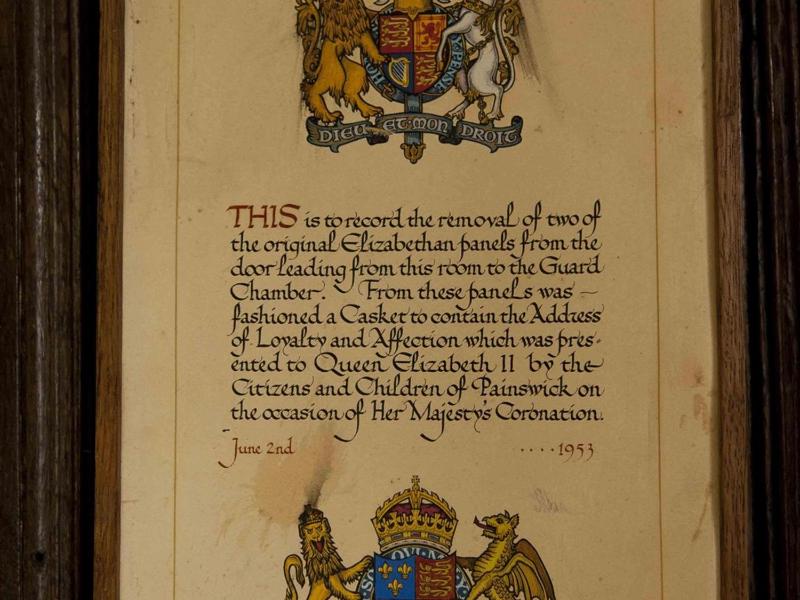 Y·PENSE
DIEU ET·MON DROIT
THIS is to record the removal of two of
the original Elizabethan panels from the
door leading from this room to the Guard
Chamber. From these panels was —
fashioned a Casket to contain the Address
of Loyalty and Affection which was pres-
ented to Queen Elizabeth II by the
Citizens and Children of Painswick on
the occasion of Her Majesty's Coronation.
June 2nd ....1953